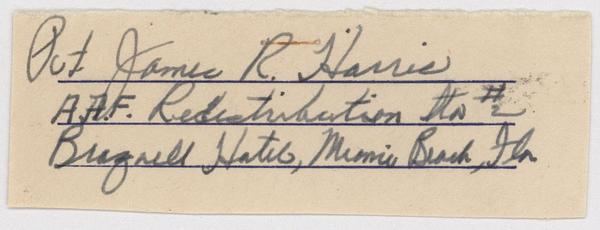 Pvt James R. Harris
A.A.F. Redistribution Sta #2
Hotel, Miami Beach, Fla